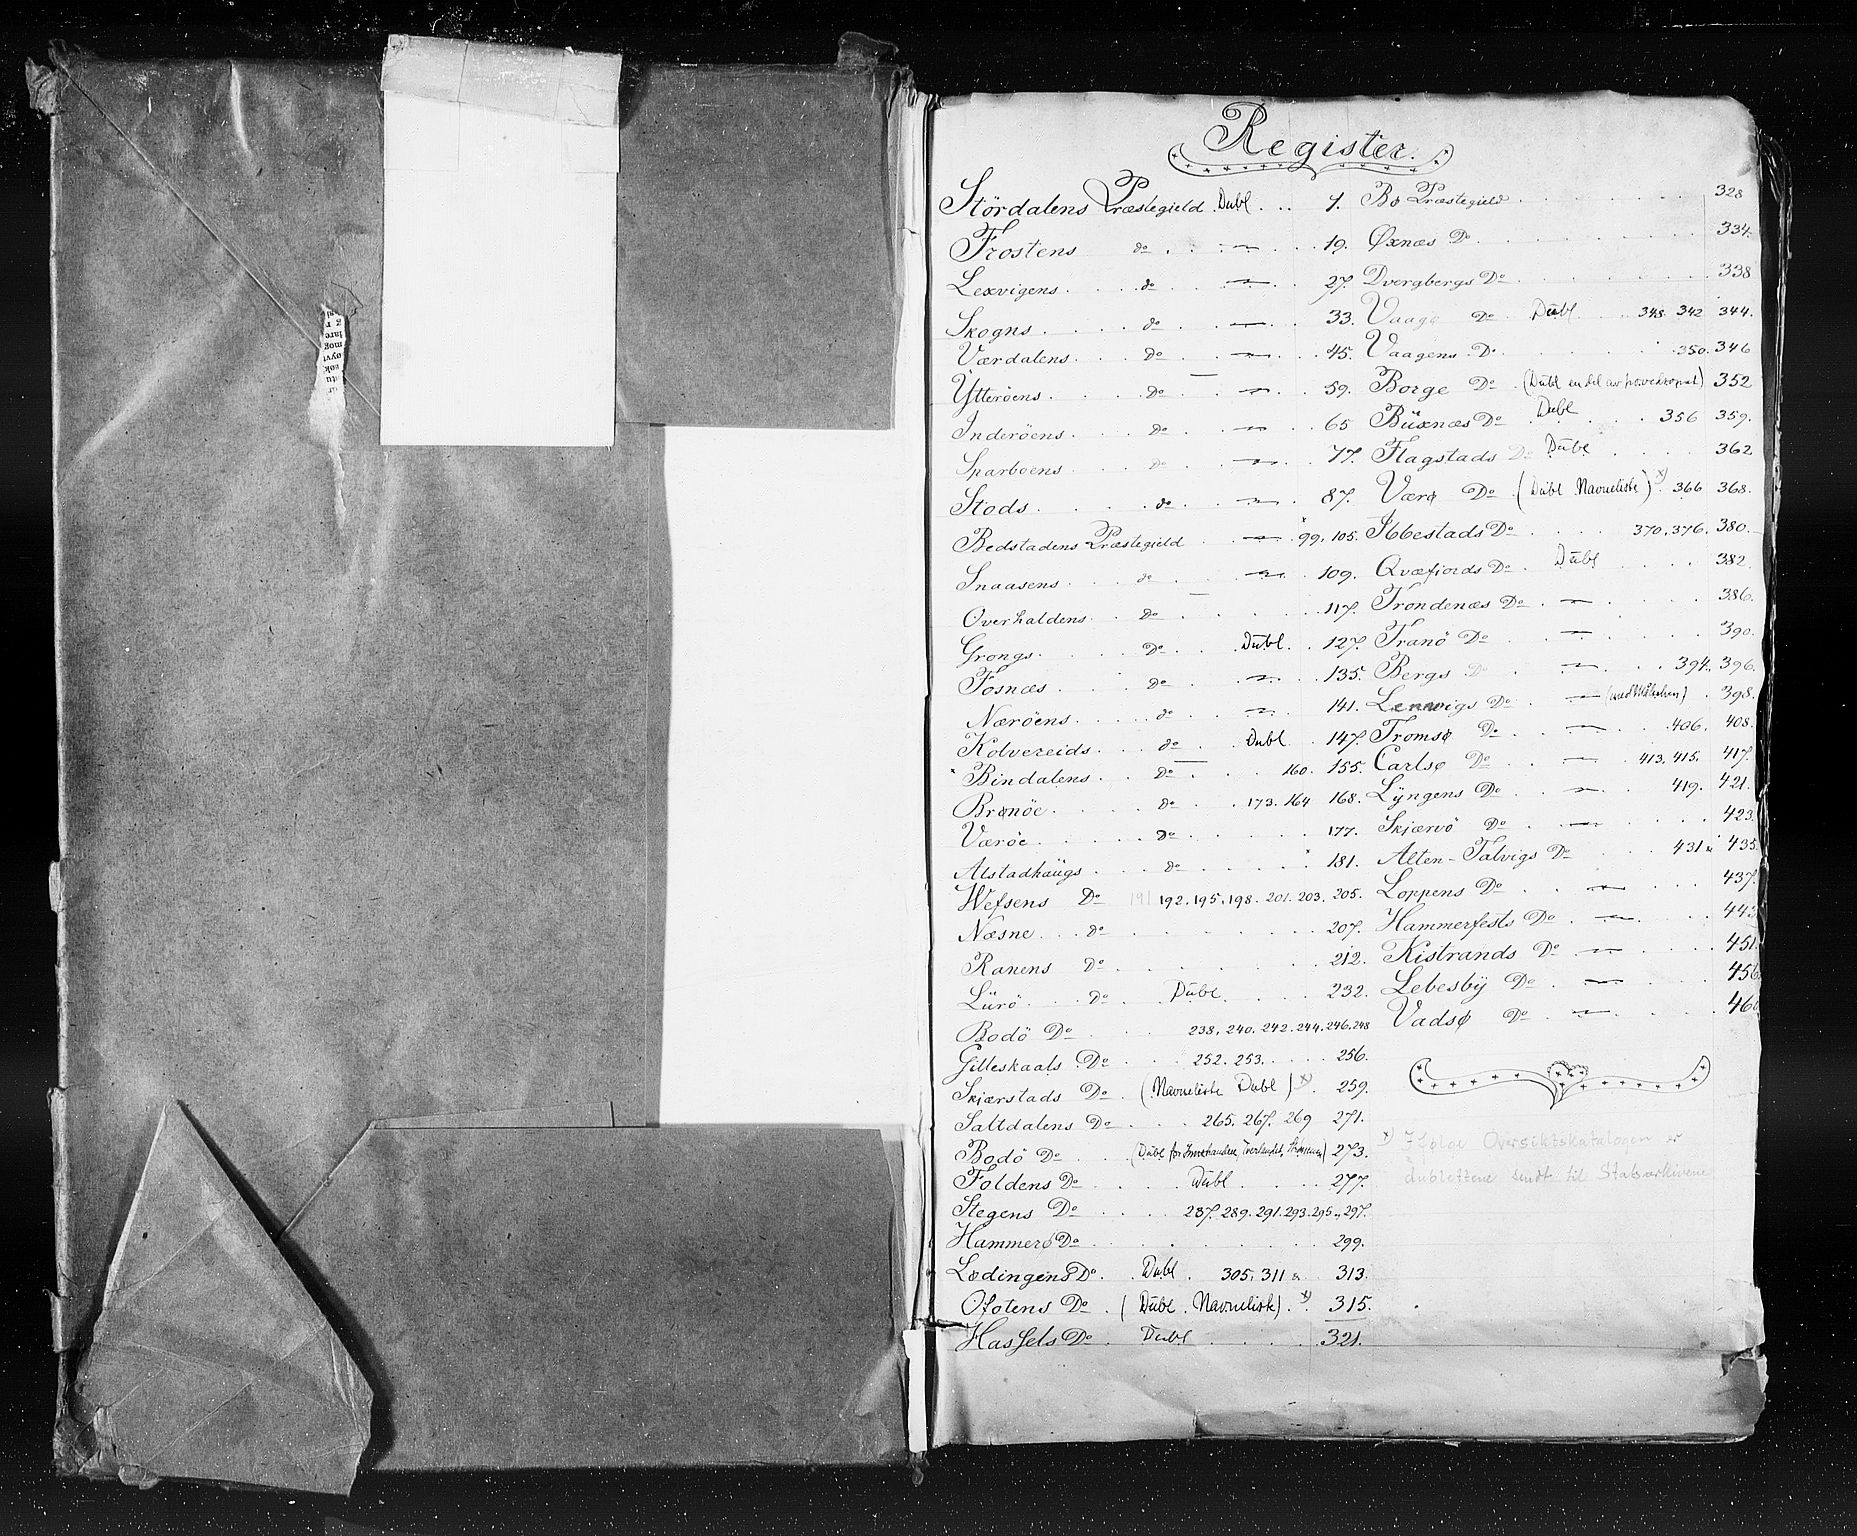 Register.
Stördalens Præstegield Dubl . . . 1.
Frostens do — 19.
Lexvigens do — 27.
Skogns do — 33.
Værdalens do — 45.
Ytterøens do — 59.
Inderöens do — 65
Sparboens do — 77.
Stods do — 87.
Bedstadens Præstegield — 99, 105.
Snaasens do — 109.
Overhaldens do 117.
Grongs Do Dubl. 127.
Fosnæs Do — 135.
Nærøens do — 141.
Kolvereids do Dubl 147.
Bindalens Do 160. 155.
Brønöe do 173. 164 168.
Væröe Do 177.
Alstadhaugs do 181.
Wefsens Do 191 192. 195. 198. 201. 203. 205.
Næsne do 207.
Ranens Do 212.
Lürö do Dubl. 232.
Bodö Do 238, 240. 242. 244. 246. 248
Gilleskaals Do 252. 253. 256.
Skjærstads Do (Navneliste Dubl) x) 259.
Saltdalens Do 265. 267. 269 271.
Bodö Do (Dubl for 273.
Foldens Do Dubl 277.
Stegens Do 287. 289. 291. 293. 295. 297.
Hammerø Do 299.
Lødingens Do Dubl 305. 311 a 313.
Ofotens Do (Dubl. Navneliste) x) 315.
Hassels Do Dubl 321.
Bø Præstegield 328
Øxnæs Do 334.
Dvergbergs Do 338
Vaagø Do Dubl 348. 342 344.
Vaagens Do 350. 346
Borge Do (Dubl en del av hovederopat) 352
Büxnæs Do Dubl 356 359.
Flagstads Do Dubl 362
Værø Do (Dubl Navneliste) x) 366 368.
Ibbestads Do 370, 376. 380.
Qvæfjords Do Dubl 382.
Trondenæs Do — 386.
Tranö Do — 390.
Bergs Do — 394, 396.
Lenvigs Do — 398.
Tromsø Do — 406. 408.
Carlsø Do — 413, 415. 417.
Lyngens Do — 419. 421.
Skjærvö Do — 423.
Alten-Talvigs Do 431 a 435.
Loppens Do — 437.
Hammerfests Do — 443
Kistrands Do — 451.
Lebesby Do — 456
Vadsø Do — 460
x) Ifølge Oversiktskatalogen er
dublettene sendt til Statsarkivene